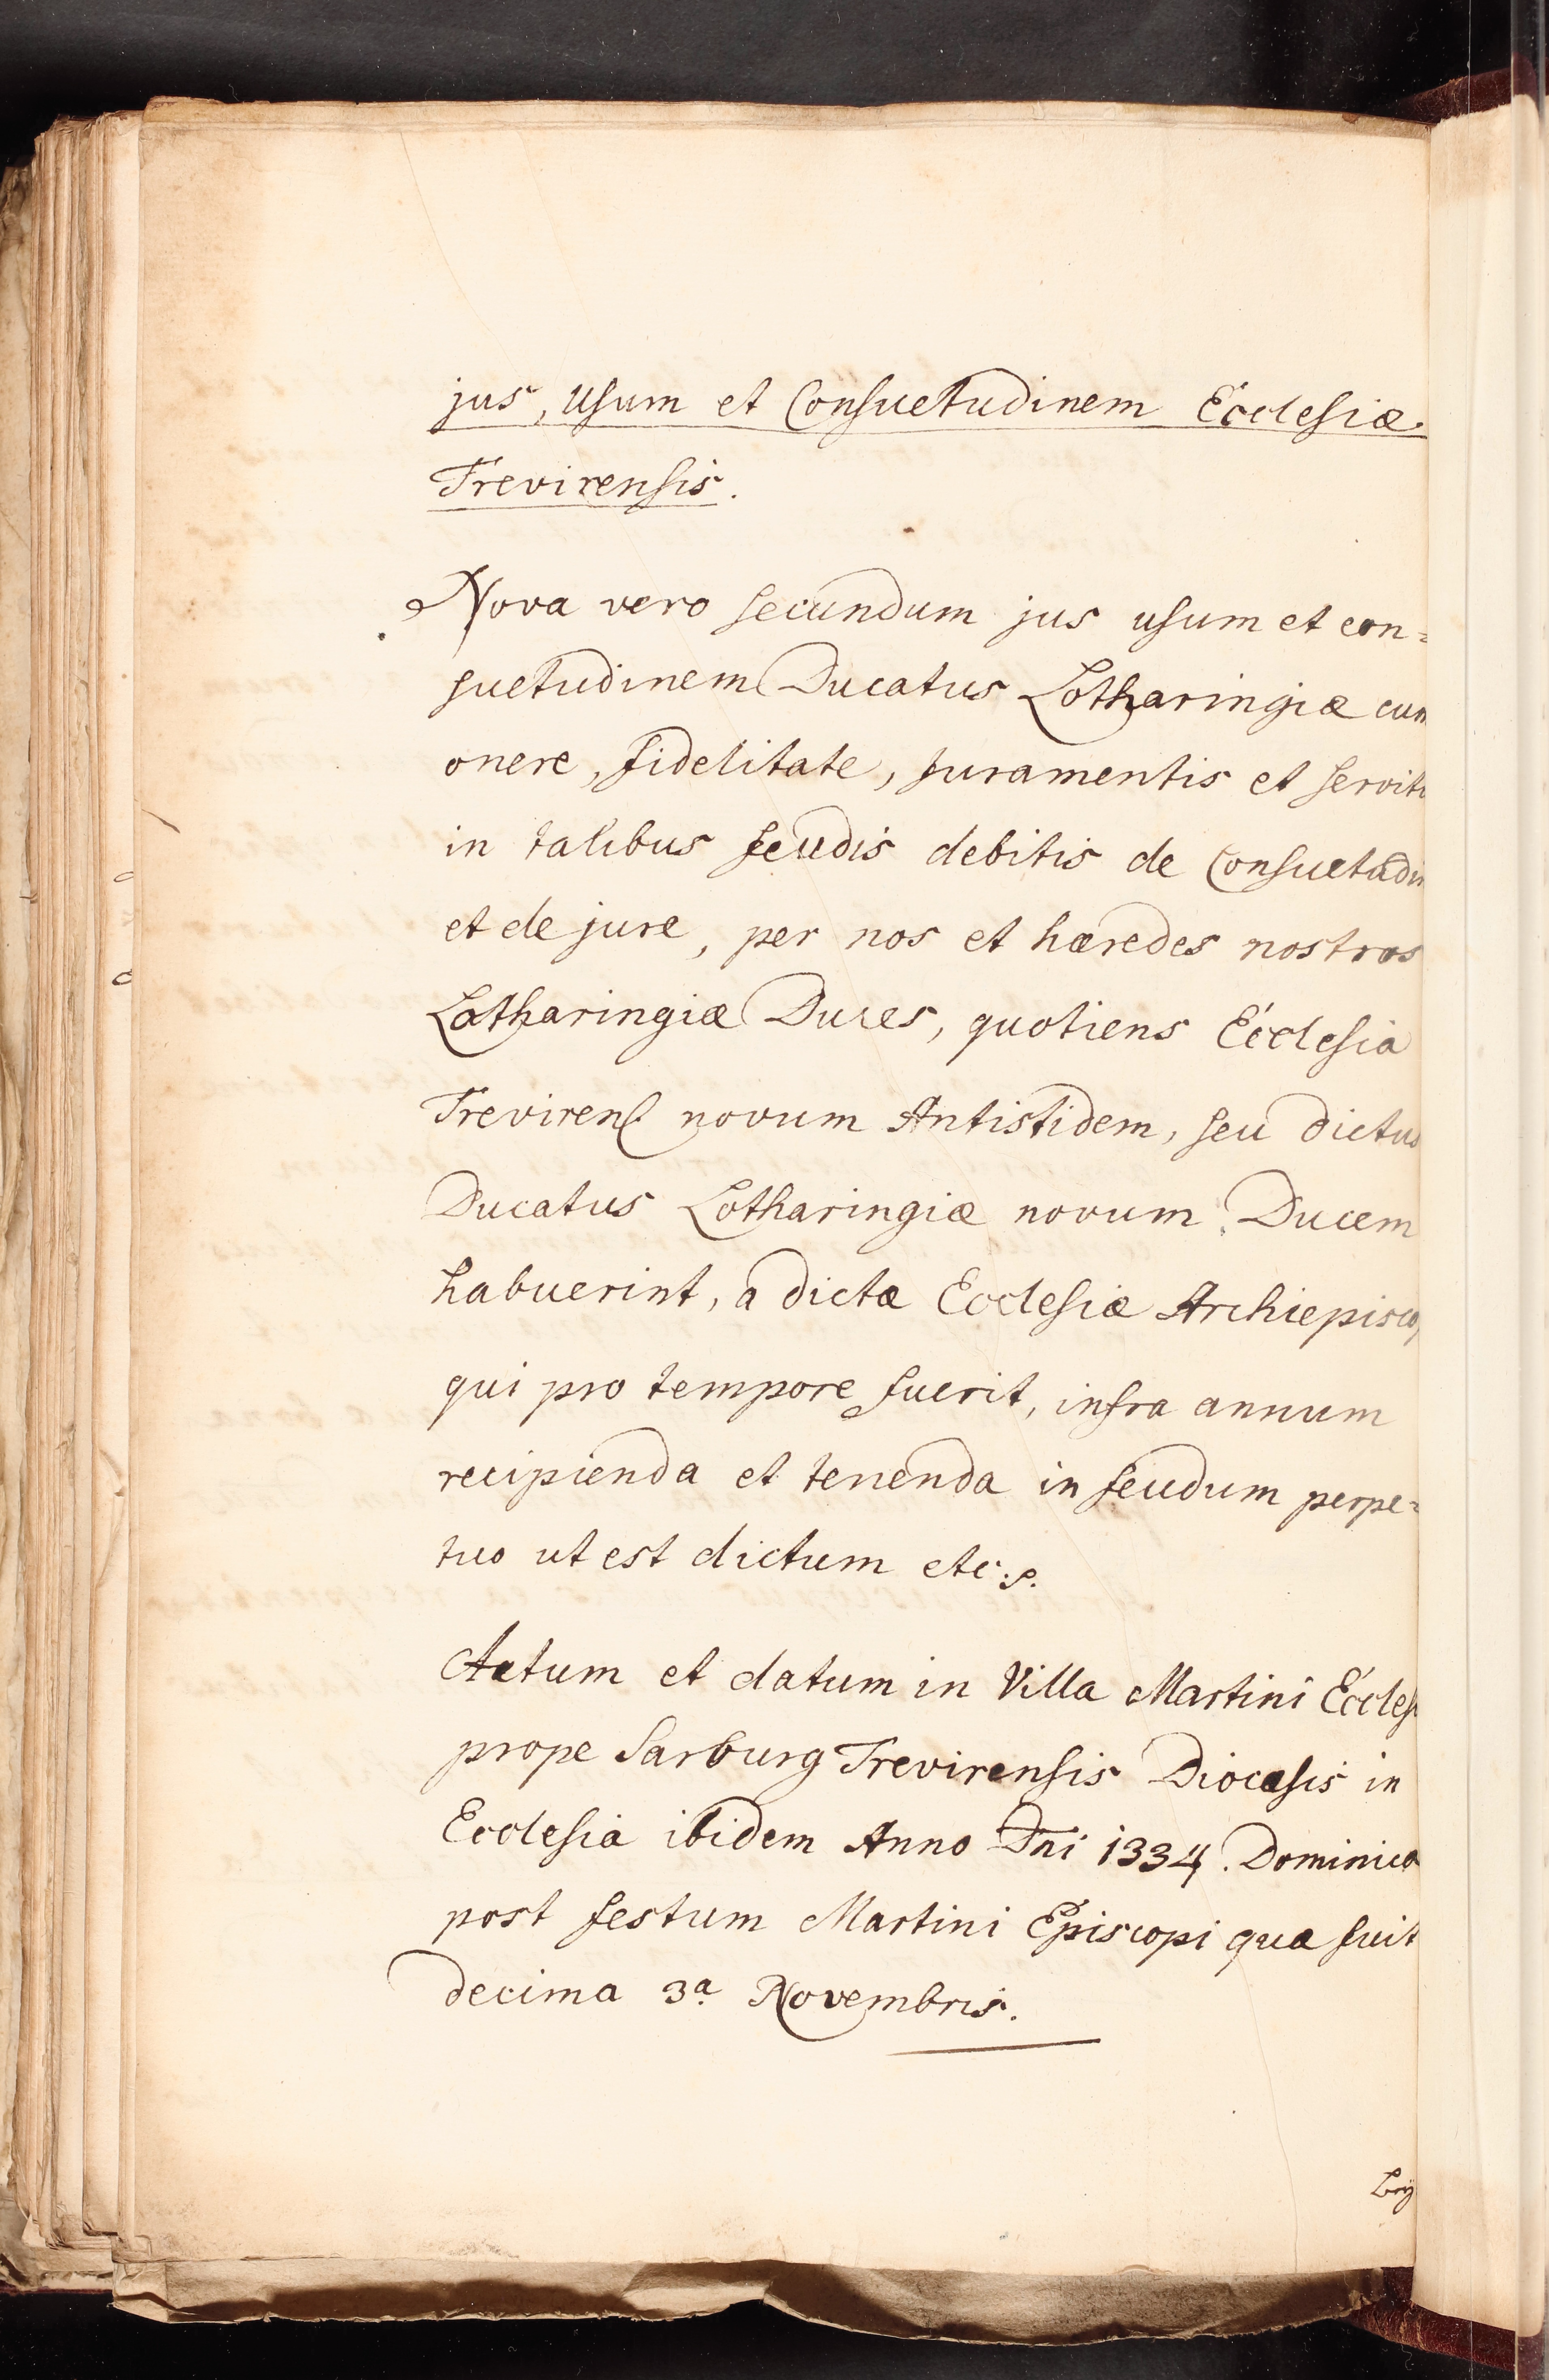 jus, Usum et Consuetudinem Ecclesiæ
Trevirensis.
Nova vero secundum jus usum et con=
suetudinem Ducatus Lotharingiæ cum
onere, fidelitate, Juramentis et servit
in talibus feudis debitis de Consuetudin
et de jure, per nos et hæredes nostros
Lotharingiæ Duces, quotiens Ecclesia
Trevirens novum Antistidem, seu dictus
Ducatus Lotharingiæ novum Ducem
habuerint, a dictæ Ecclesiæ Archiepisco
qui pro tempore fuerit, infra annum
recipienda et tenenda in feudum perpe=
tuo ut est dictum etc:p.
Actum et datum in Villa Martini Eccles
prope Sarburg Trevirensis Diocæsis in
Ecclesia ibidem Anno Dni 1334. Dominica
post festum Martini Episcopi quæ fuit
decima 3a. Novembris.